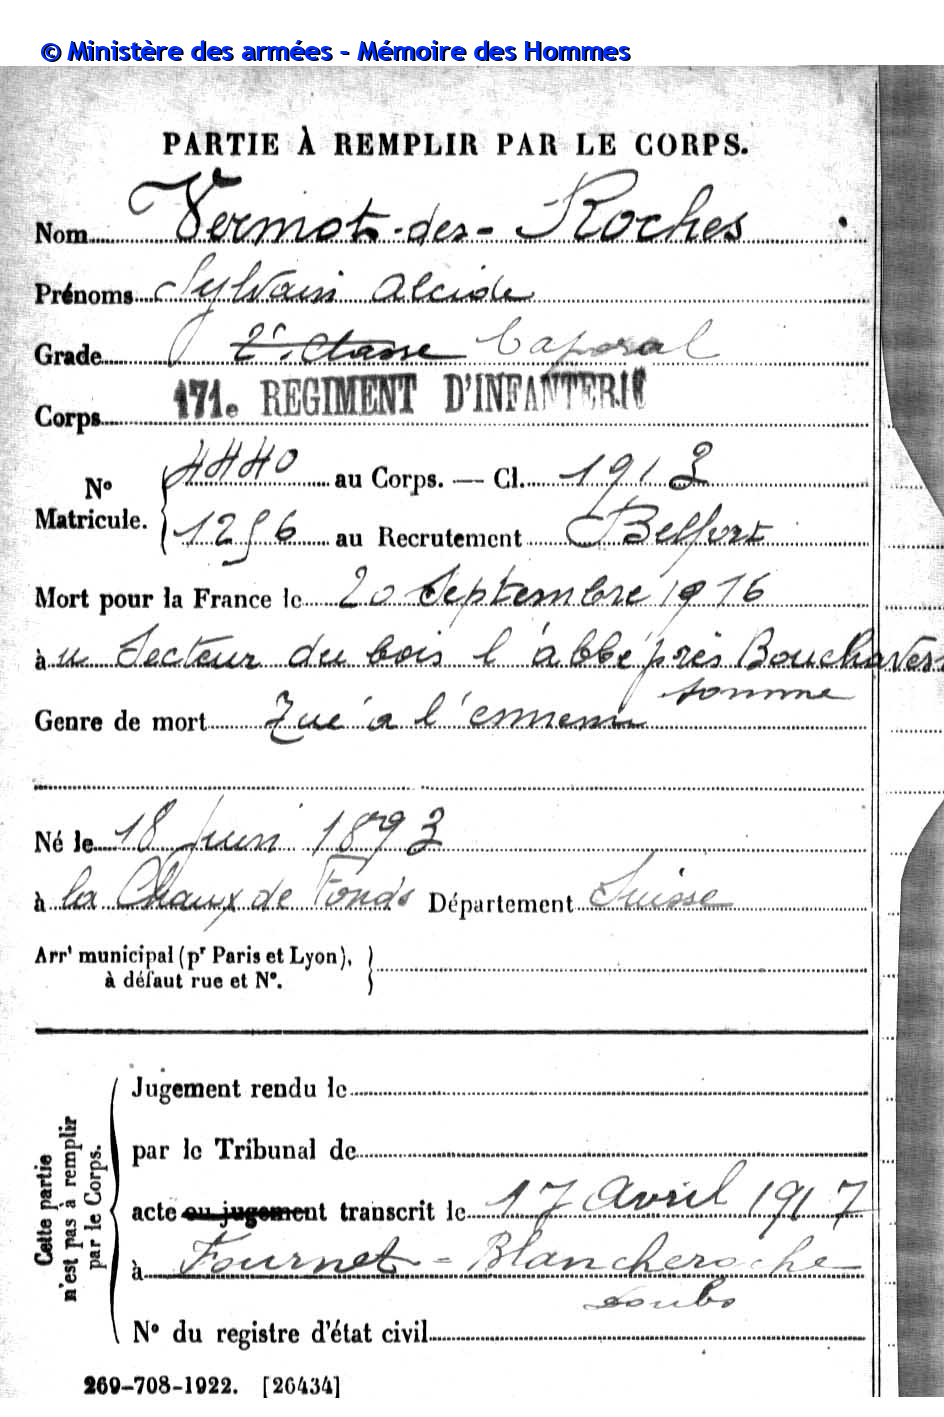 © Ministère des armées - Mémoire des Hommes
PARTIE À REMPLIR PAR LE CORPS.
Nom Vermot-des-Roches
Prénoms Sylvain Alcide
Grade 2e classe Caporal
Corps 171e REGIMENT D'INFANTERIE
N° Matricule. 4440 au Corps. — Cl. 1913
1256 au Recrutement Belfort
Mort pour la France le 20 Septembre 1916
à u Secteur du bois l'abbé près Bouchavesn
Somme
Genre de mort Tué à l'ennemi
Né le 18 Juin 1893
à la Chaux de Fonds Département Suisse
Arrt municipal (pr Paris et Lyon),
à défaut rue et N°.
Cette partie n'est pas à remplir par le Corps.
Jugement rendu le
par le Tribunal de
acte ou jugement transcrit le 17 Avril 1917
à Fournet-Blancheroche
Doubs
N° du registre d'état civil
269-708-1922. [26434]